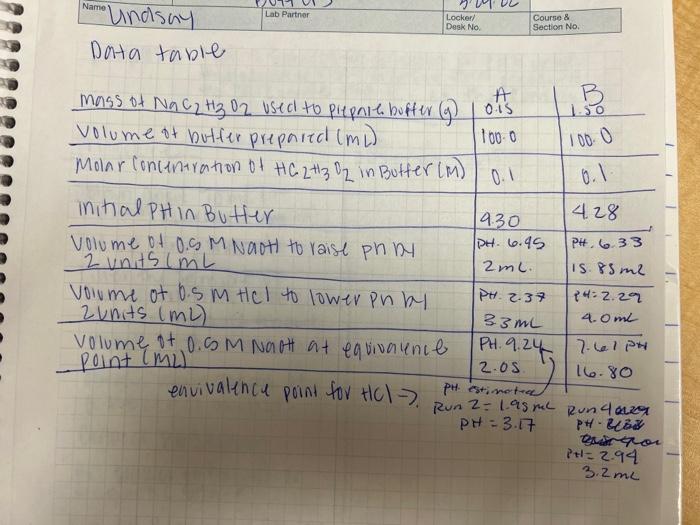 Name Lindsay
Lab Partner
Locker/
Desk No.
Course &
Section No.
Data table
A B
mass of NaC2H3O2 used to prepare buffer (g) 0.15 1.50
Volume of buffer prepared (mL) 100.0 100.0
Molar Concentration of HC2H3O2 in Buffer (M) 0.1 0.1
initial PH in Buffer 4.30 4.28
Volume of 0.5 M NaOH to raise pH by PH. 6.45 PH. 6.33
2 units (mL 2mL. 15.85mL
Volume of 0.5 M HCl to lower pH by PH. 2.37 PH=2.29
2 units (mL) 33mL 4.0mL
Volume of 0.5 M NaOH at equivalence PH. 9.24 7.61 PH
point (mL) 2.05 16.80
equivalence point for HCl → PH estimated
Run 2 = 1.95mL Run 4
PH = 3.17 PH.
PH=2.94
3.2mL